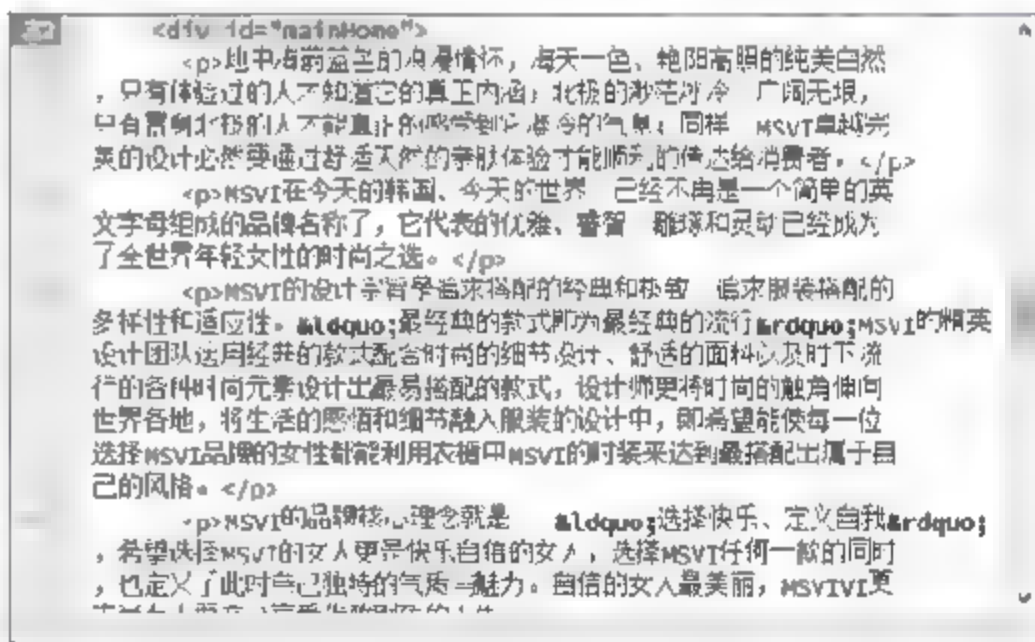 <div id="mainHome">
<p>地中海蔚蓝色的浪漫情怀，海天一色、艳阳高照的纯美自然
，只有体验过的人才知道它的真正内涵；北极的渺茫冰冷 广阔无垠，
只有贯穿北极的人才能真正的感受到它凝冷的气息；同样 MSVI卓越完
美的设计必然要通过舒适天然的亲肤体验才能顺利的传达给消费者。</p>
<p>MSVI在今天的韩国、今天的世界 已经不再是一个简单的英
文字母组成的品牌名称了，它代表的优雅、睿智 雕琢和灵动已经成为
了全世界年轻女性的时尚之选。</p>
<p>MSVI的设计 哲学追求搭配的经典和 追求服装搭配的
多样性和适应性。&ldquo;最经典的款式即为最经典的流行&rdquo;MSVI的精英
设计团队运用经典的款式配合时尚的细节设计、舒适的面料以及时下流
行的各种时尚元素设计出最易搭配的款式，设计师更将时尚的触角伸向
世界各地，将生活的感悟和细节融入服装的设计中，即希望能使每一位
选择MSVI品牌的女性都能利用衣橱中MSVI的时装来达到最搭配出属于自
己的风格。</p>
<p>MSVI的品牌核心理念就是 &ldquo;选择快乐、定义自我&rdquo;
，希望选择MSVI的女人更是快乐自信的女人，选择MSVI任何一款的同时
，也定义了此时自己独特的气质与魅力。自信的女人最美丽，MSVIVI更